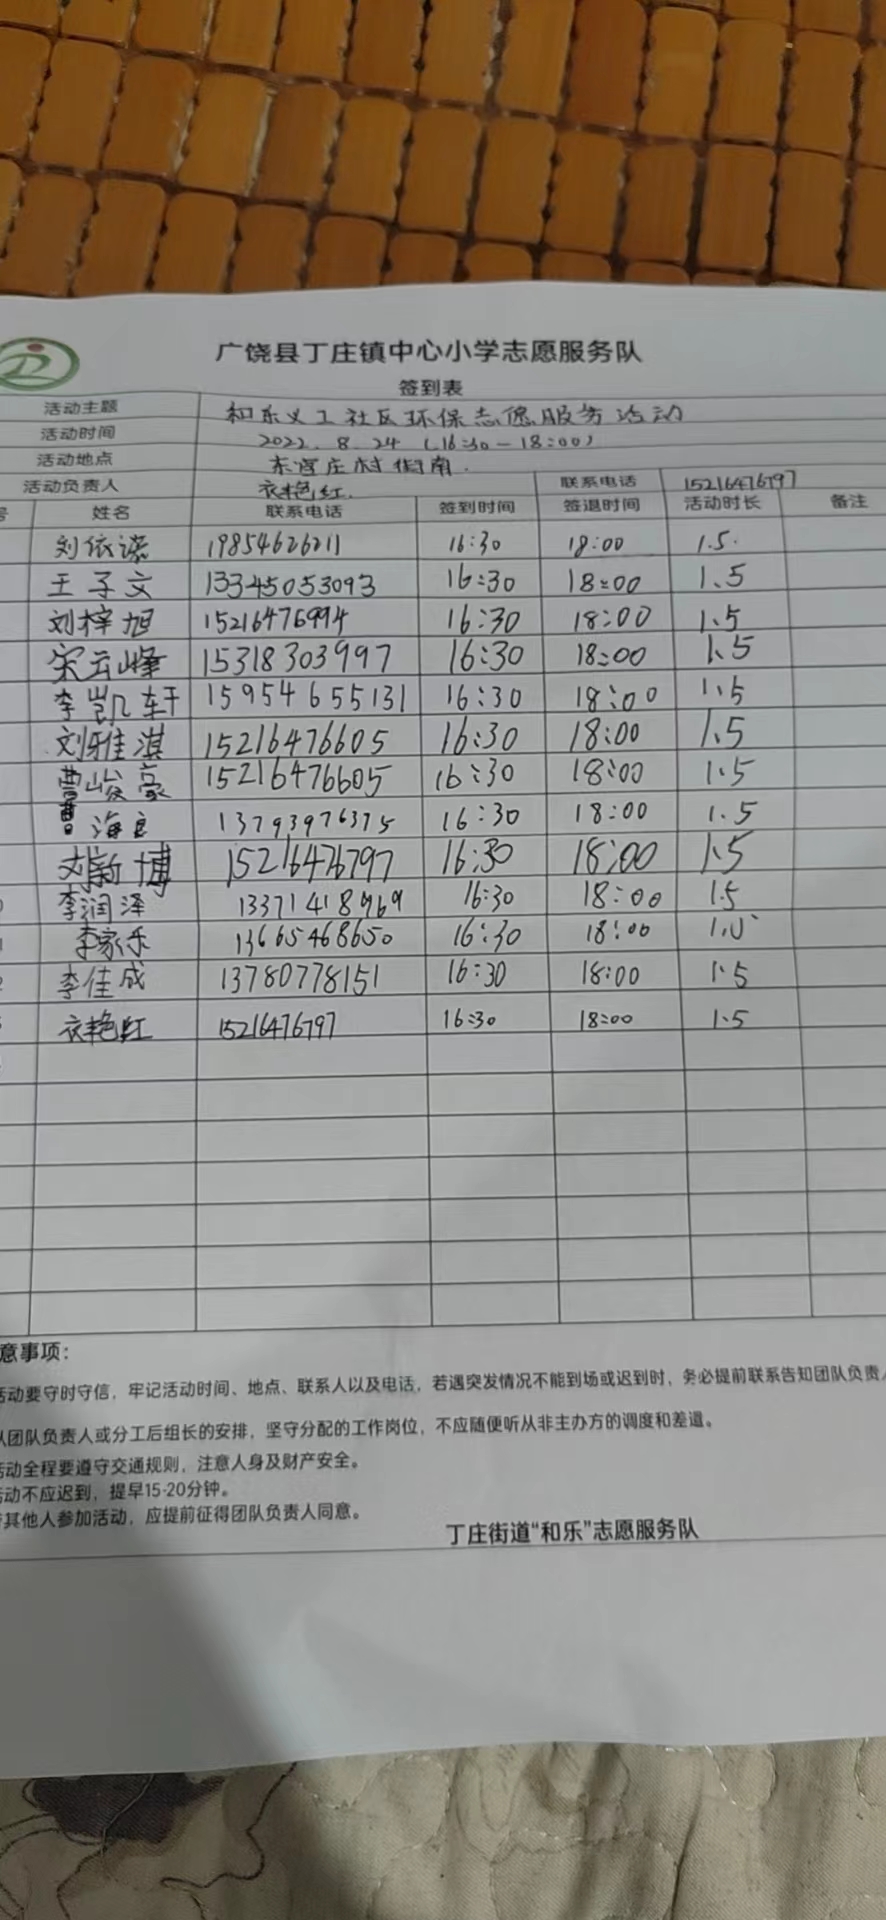 广饶县丁庄镇中心小学志愿服务队
签到表
活动主题 和乐义工社区环保志愿服务活动
活动时间 2022.8.24 (16:30-18:00)
活动地点 东营庄村街南.
活动负责人 衣艳红. 联系电话 15216476797
号 姓名 联系电话 签到时间 签退时间 活动时长 备注
刘依诺 19854626211 16:30 18:00 1.5.
王子文 13345053093 16:30 18:00 1.5
刘梓旭 15216476994 16:30 18:00 1.5
宋云峰 15318303997 16:30 18:00 1.5
李凯轩 15954655131 16:30 18:00 1.5
刘雅淇 15216476605 16:30 18:00 1.5
曹峻豪 15216476605 16:30 18:00 1.5
曹海良 13793976375 16:30 18:00 1.5
刘新博 15216476797 16:30 18:00 1.5
0 李润泽 13371418969 16:30 18:00 1.5
1 李家乐 13665468650 16:30 18:00 1.5
2 李佳成 13780778151 16:30 18:00 1.5
衣艳红 15216476797 16:30 18:00 1.5
意事项：
活动要守时守信，牢记活动时间、地点、联系人以及电话，若遇突发情况不能到场或迟到时，务必提前联系告知团队负责
团队负责人或分工后组长的安排，坚守分配的工作岗位，不应随便听从非主办方的调度和差遣。
活动全程要遵守交通规则，注意人身及财产安全。
活动不应迟到，提早15-20分钟。
其他人参加活动，应提前征得团队负责人同意。
丁庄街道“和乐”志愿服务队